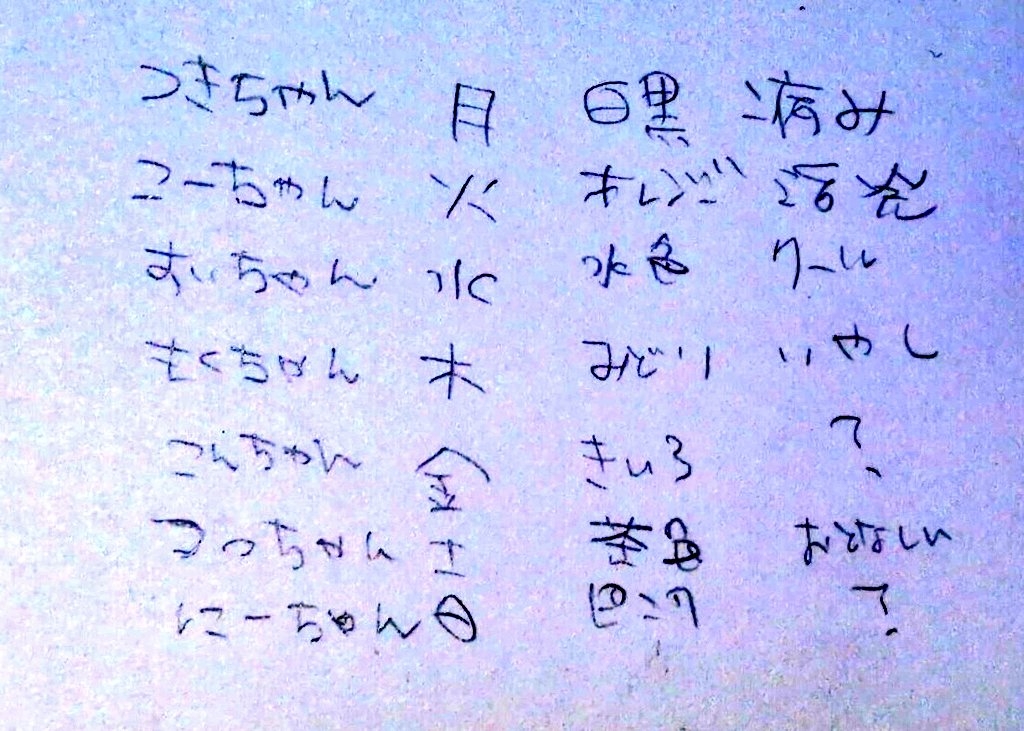 つきちゃん 月 白黒 病み
こーちゃん 火 オレンジ 活発
すいちゃん 水 水色 クール
もくちゃん 木 みどり いやし
こんちゃん 金 きいろ ?
つっちゃん 土 茶色 おとなしい
にーちゃん 日 ピンク ?